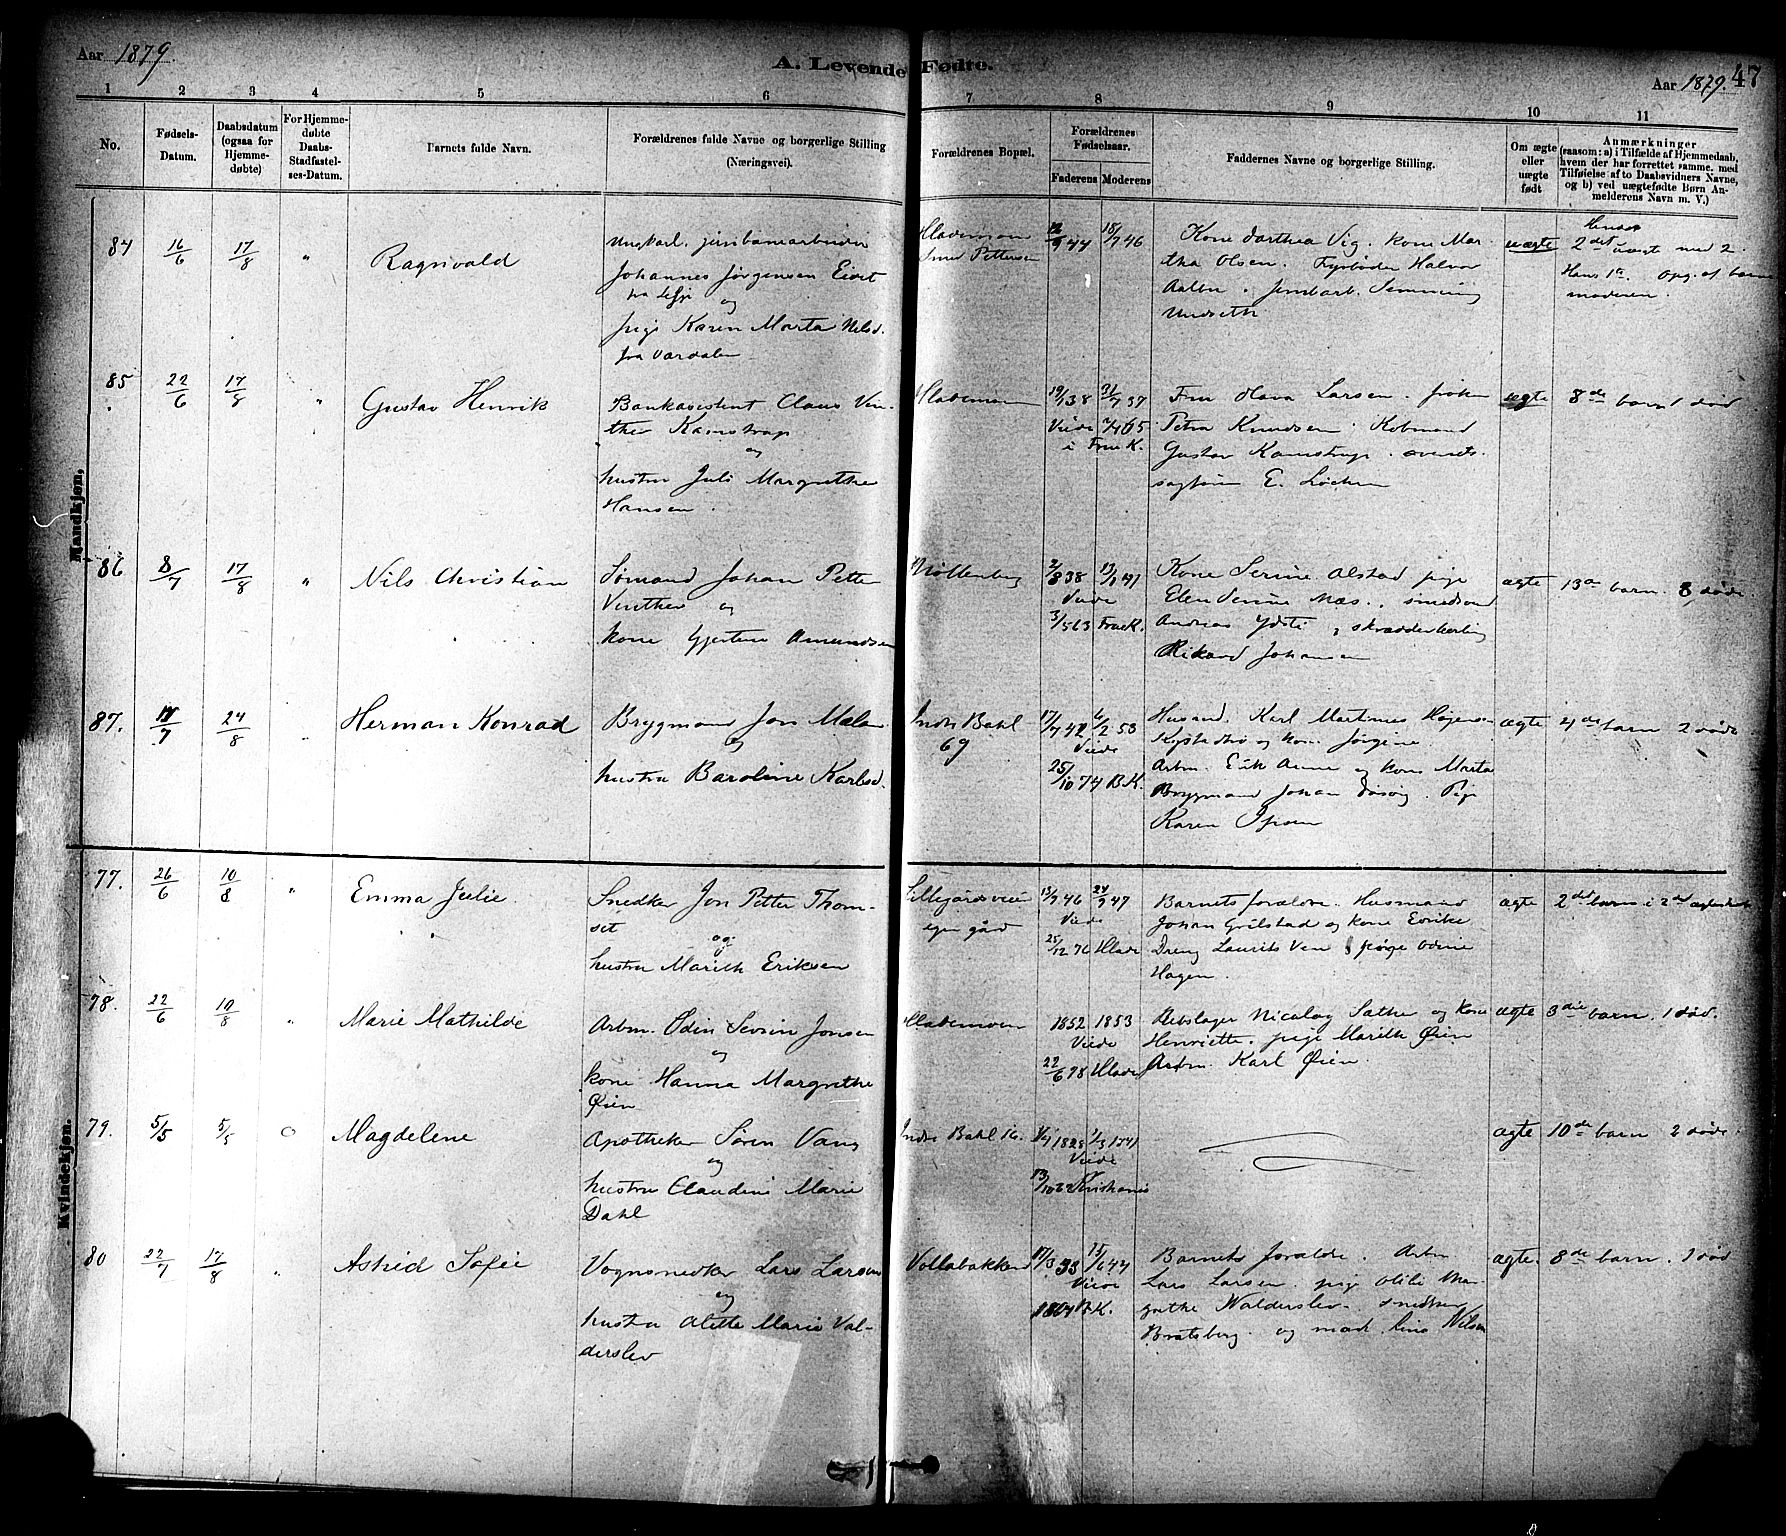 Aar 1879.
A. Levende Fødte.
Aar 1879. 47
1 2 3 4 5 6 7 8 9 10 11
No.
Fødsels-
Datum.
Daabsdatum
(ogsaa for
Hjemme-
døbte)
For Hjemme-
døbte
Daabs-
Stadfæstel-
ses-Datum.
Barnets fulde Navn.
Forældrenes fulde Navne og borgerlige Stilling
(Næringsvei).
Forældrenes Bopæl.
Forældrenes
Fødselsaar.
Faderens Moderens
Faddernes Navne og borgerlige Stilling.
Om ægte
eller
uægte
født
Anmærkninger
(saasom: a) i Tilfælde af Hjemmedaab,
hvem der har forrettet samme, med
Tilføielse af to Daabsvidners Navne,
og b) ved uægtefødte Børn An-
melderens Navn m. V.)
Mandkjøn.
84 16/6 17/8 " Ragnvald
Ungkarl, jernbanearbeider
Johannes Jørgensen
og
pige Karen Marta Nelsd.
fra Værdalen
Lademoen
Pettersen
12/9 44 18/7 46
Kone Dorthea Vig. kone Mar-
tha Olsen. Fyrbøder Halvor
Undseth
uægte
2det uægt med 2.
Hans 1te. Opg. af barne
moderen.
85 22/6 17/8 " Gustav Henrik
Bankassistent Claus Vin-
ther Kamstrup
og
hustru Juli Margrethe
Hansen.
Lademoen
19/1 38 31/7 37
Viede
i Frue K.
Fru Olava Larsen. frøken
Petra Knudsen. Kobmand
Gustav Kamstrup. overrets-
sagfører E. Løchen
ægte
8de barn 1 død
86 8/7 17/8 " Nils Christian
Sømand Johan Petter
Vinther og
kone Gjertine Amundsen
Møllenberg
2/8 38 13/1 41
Viede
3/5 63 Frue K.
Kone Serine Alstad pige
Elen Serine Næs. smedsvend
Andreas Ydsti, skrædderlærling
Rikard Johansen
ægte
13de barn. 8 døde.
87. 17/7 24/8 " Herman Konrad
Brygmand Jon Mælen
og
hustru Baroline Karlsd.
Indh Bakl
69
17/7 42 6/2 53
Viede
25/10 74 B.K.
Husmd. Karl Martinus
Kystadtrø og kone Jørgine
Arbm. Erik Aune og kone Marta
Brygmand Johan Pige
Karen
ægte
4de barn 2 døde.
Kvindekjøn.
77. 26/6 10/8 " Emma Julie
Snedker Jon Petter Thom-
set
og
hustru Marith Eriksen
Lillegårdsveien
egen gård
13/7 46 24/9 47
Viede
25/12 76 Hlade
Barnets forældre. Husmand
Johan Grilstad og kone Edrike
Dreng Laurits Ven pige Odine
Hagen.
ægte
2det barn i 2det ægteskab
78. 22/6 10/8 " Marie Mathilde
Arbm. Odin Sevrin Jonsen
og
kone Hanna Margrethe
Øien
Lademoen
1852 1853
Viede
22/6 78 Hlade
Rebslager Nicolay Sæther og kone
Henriette. pige Marith Øien
Arbm. Karl Øien.
ægte
3die barn. 1 død.
79. 5/5 5/5 O Magdelene
Apotheker Søren Vang
og
hustru Claudine Marie
Dahl
Indh Bakl 16.
Viede
Kristiania
ægte
10de barn 2 døde.
80 22/7 17/8 " Astrid Sofie
Vognsnedker Lars Larsen
og
hustru Alette Marie Val-
derslev
Vollabakken
17/3 33 15/6 44
Viede
1864 B.K.
Barnets forældre. Arbm
Lars Larsen. pige Olili Mar-
grethe Walderslev. snedker
Bratsberg. og mad. Lina Nilsen
ægte.
8de barn. 1 død